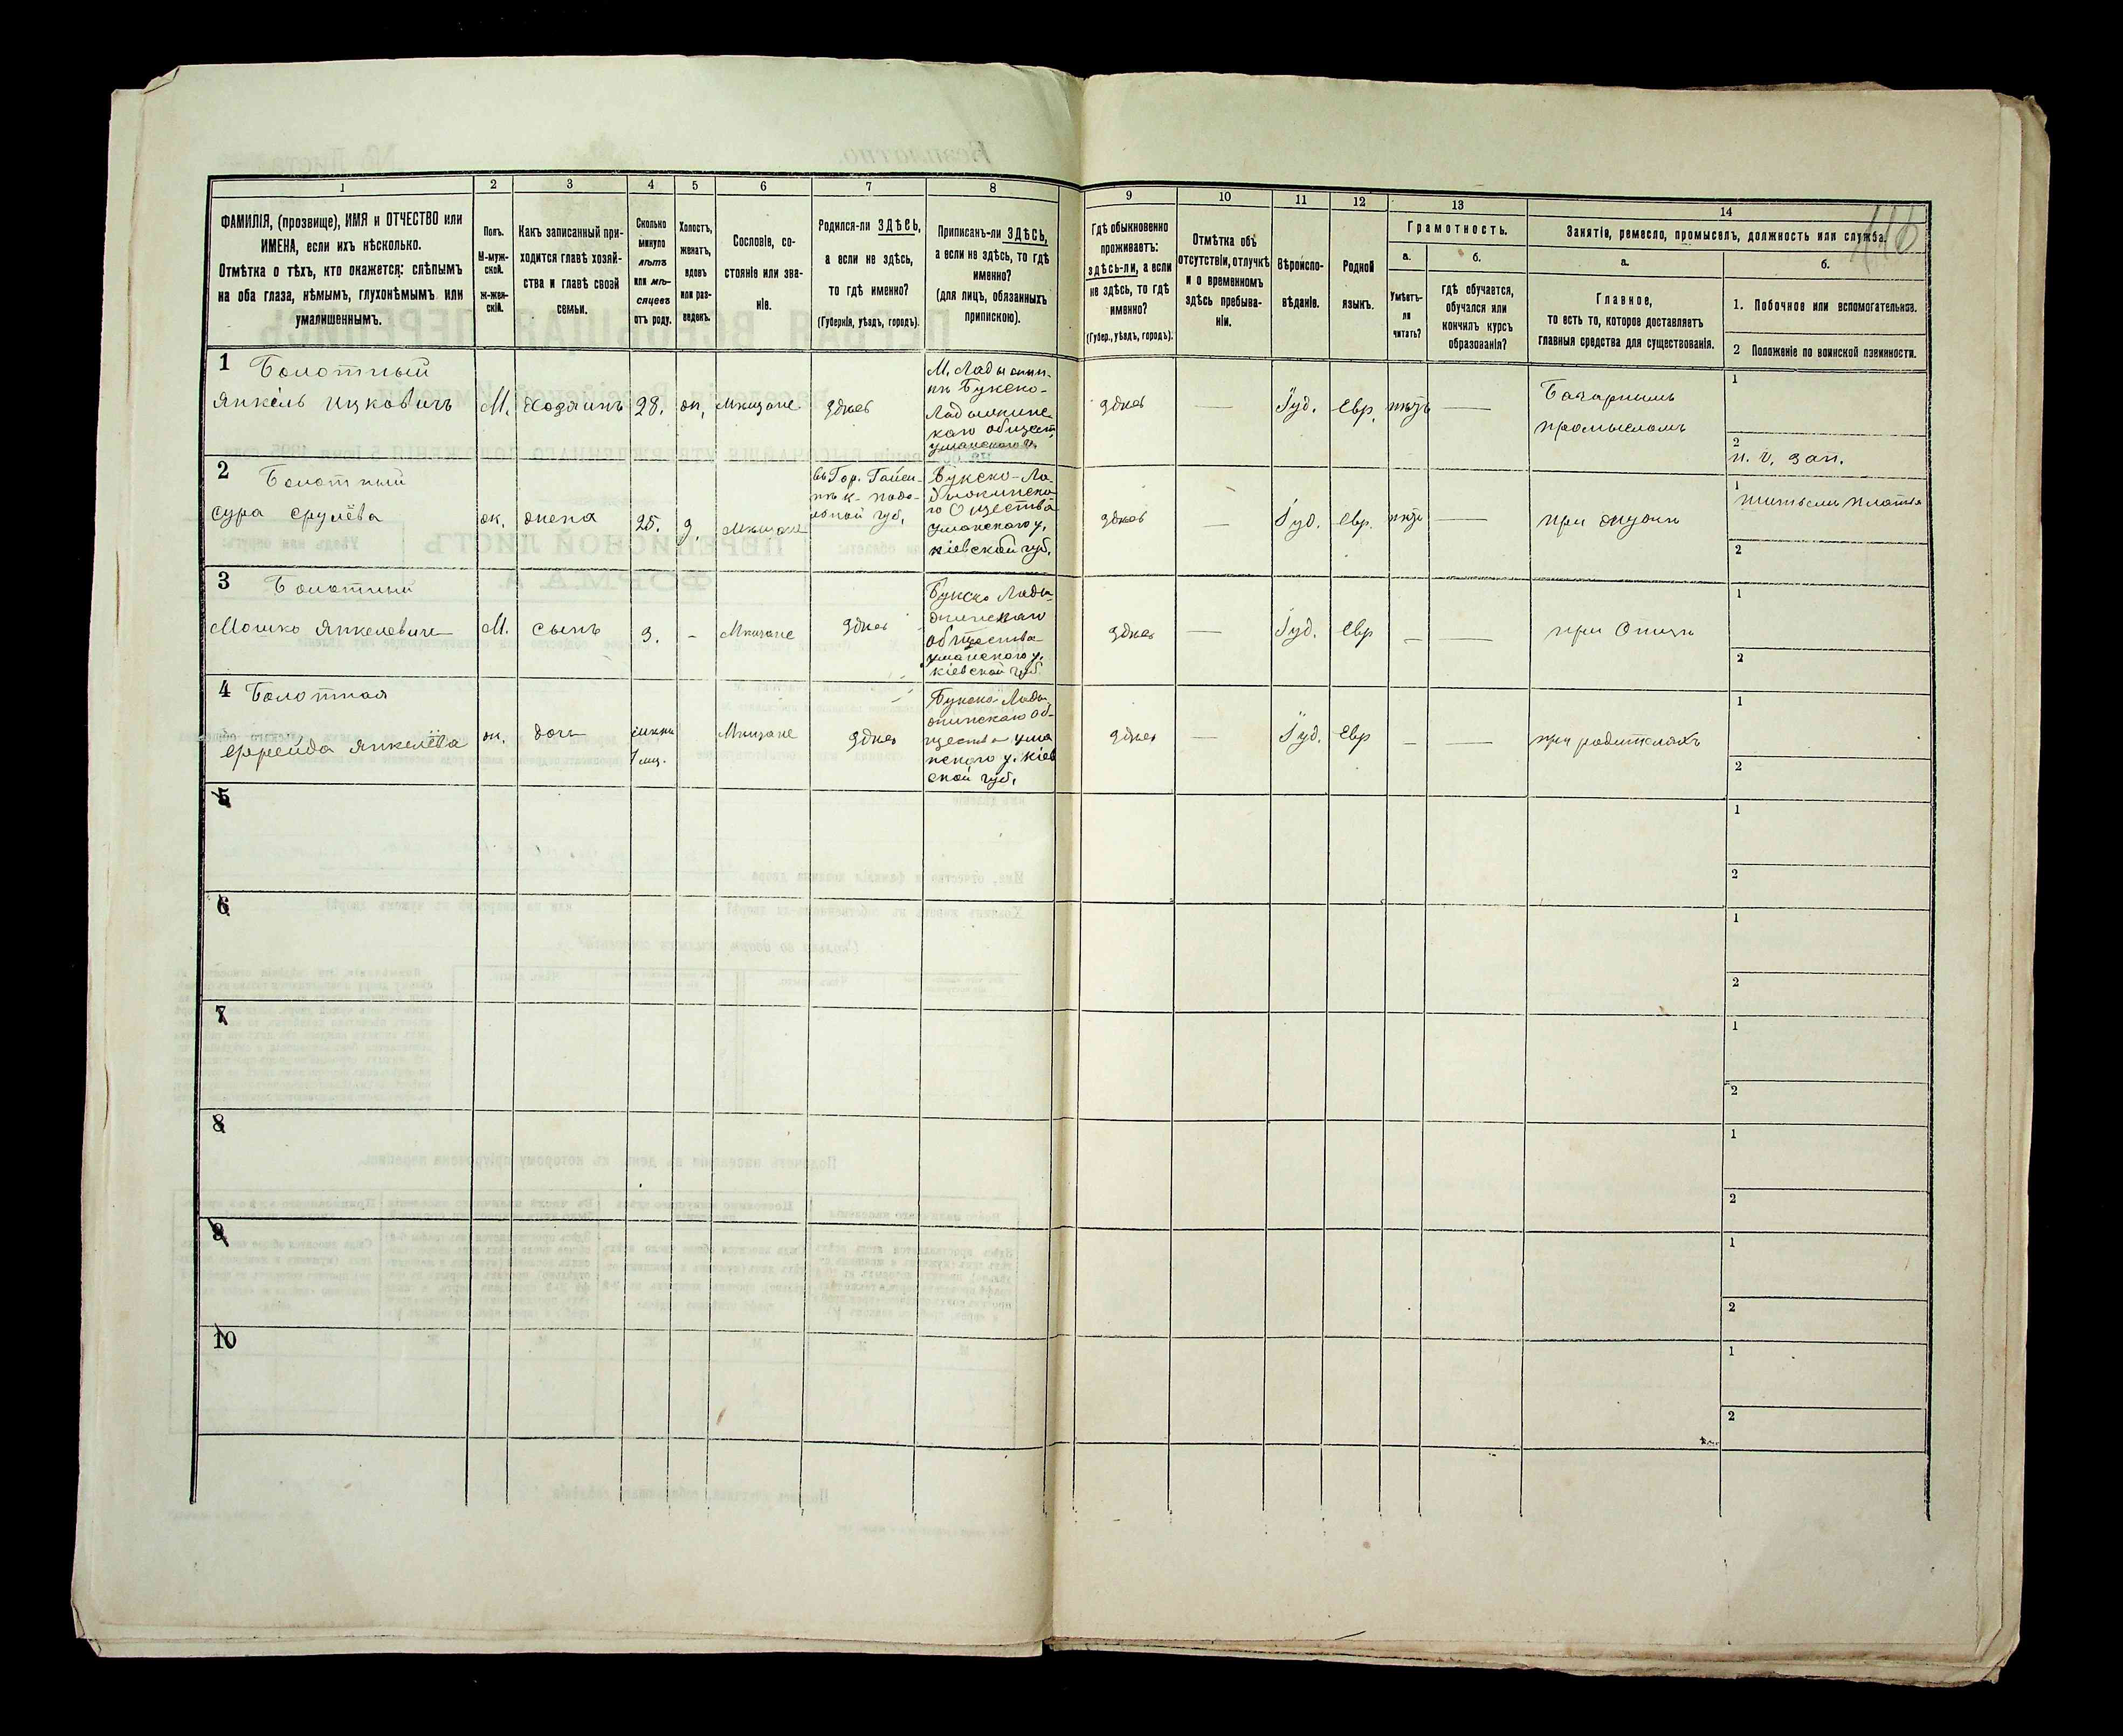 1
2
3
4
5
6
7
8
ФАМИЛІЯ, (прозвище), ИМЯ и ОТЧЕСТВО или
ИМЕНА, если ихъ нѣсколько.
Отмѣтка о тѣхъ, кто окажется: слѣпымъ
на оба глаза, нѣмымъ, глухонѣмымъ или
умалишеннымъ.
Полъ.
М-муж-
ской.
Ж-жен-
скій.
Какъ записанный при-
ходится главѣ хозяй-
ства и главѣ своей
семьи.
Сколько
минуло
лѣтъ
или мѣ-
сяцевъ
отъ роду.
Холостъ,
женатъ,
вдовъ
или раз-
веденъ.
Сословіе, со-
стояніе или зва-
ніе.
Родился-ли ЗДѢСЬ,
а если не здѣсь,
то гдѣ именно?
(Губернія, уѣздъ, городъ).
Приписанъ-ли ЗДѢСЬ,
а если не здѣсь, то гдѣ
именно?
(для лицъ, обязанныхъ
припискою).
9
10
11
12
13
14
Гдѣ обыкновенно
проживаетъ:
здѣсь-ли, а если
не здѣсь, то гдѣ
именно?
(Губер., уѣздъ, городъ).
Отмѣтка объ
отсутствіи, отлучкѣ
и о временномъ
здѣсь пребыва-
ніи.
Вѣроиспо-
вѣданіе.
Родной
языкъ.
Грамотность.
а.
Умѣетъ-
ли
читать?
б.
гдѣ обучается,
обучался или
кончилъ курсъ
образованія?
Занятіе, ремесло, промыселъ, должность или служба.
116
а.
Главное,
то есть то, которое доставляетъ
главныя средства для существованія.
б.
1. Побочное или вспомогательное.
2 Положеніе по воинской повинности.
1 Болотный
Янкель Ицковичъ
М.
Хозяинъ
28.
ж.
Мѣщане
здѣсь
Буксko-
каго общест.
Уманскаго у.
здѣсь
—
Іуд.
Евр.
нѣтъ
—
промысломъ
1
2
зап.
2 Болотный
Сура Срулёва
ж.
жена
25.
З.
Мѣщане
въ Гор. Гайси-
губ.
Общества
Уманскаго у.
Кіевской губ.
здѣсь
—
Іуд.
Евр.
нѣтъ
—
при мужѣ
1
шитьемъ платья
2
3 Болотный
Мошко Янкелевичъ
М.
сынъ
3.
-
Мѣщане
здѣсь
общества
Уманскаго у.
Кіевской губ.
здѣсь
—
Іуд.
Евр
—
—
при Отцѣ
1
2
4 Болотная
Фрейда Янкелёва
ж.
дочь
1 мѣс.
Мѣщане
здѣсь
Буксko-Лады-
жинскаго об-
щества Ума
нскаго у. Кіев
ской губ.
здѣсь
—
Іуд.
Евр
—
—
при родителяхъ
1
2
5
1
2
6
1
2
7
1
2
8
1
2
9
1
2
10
1
2